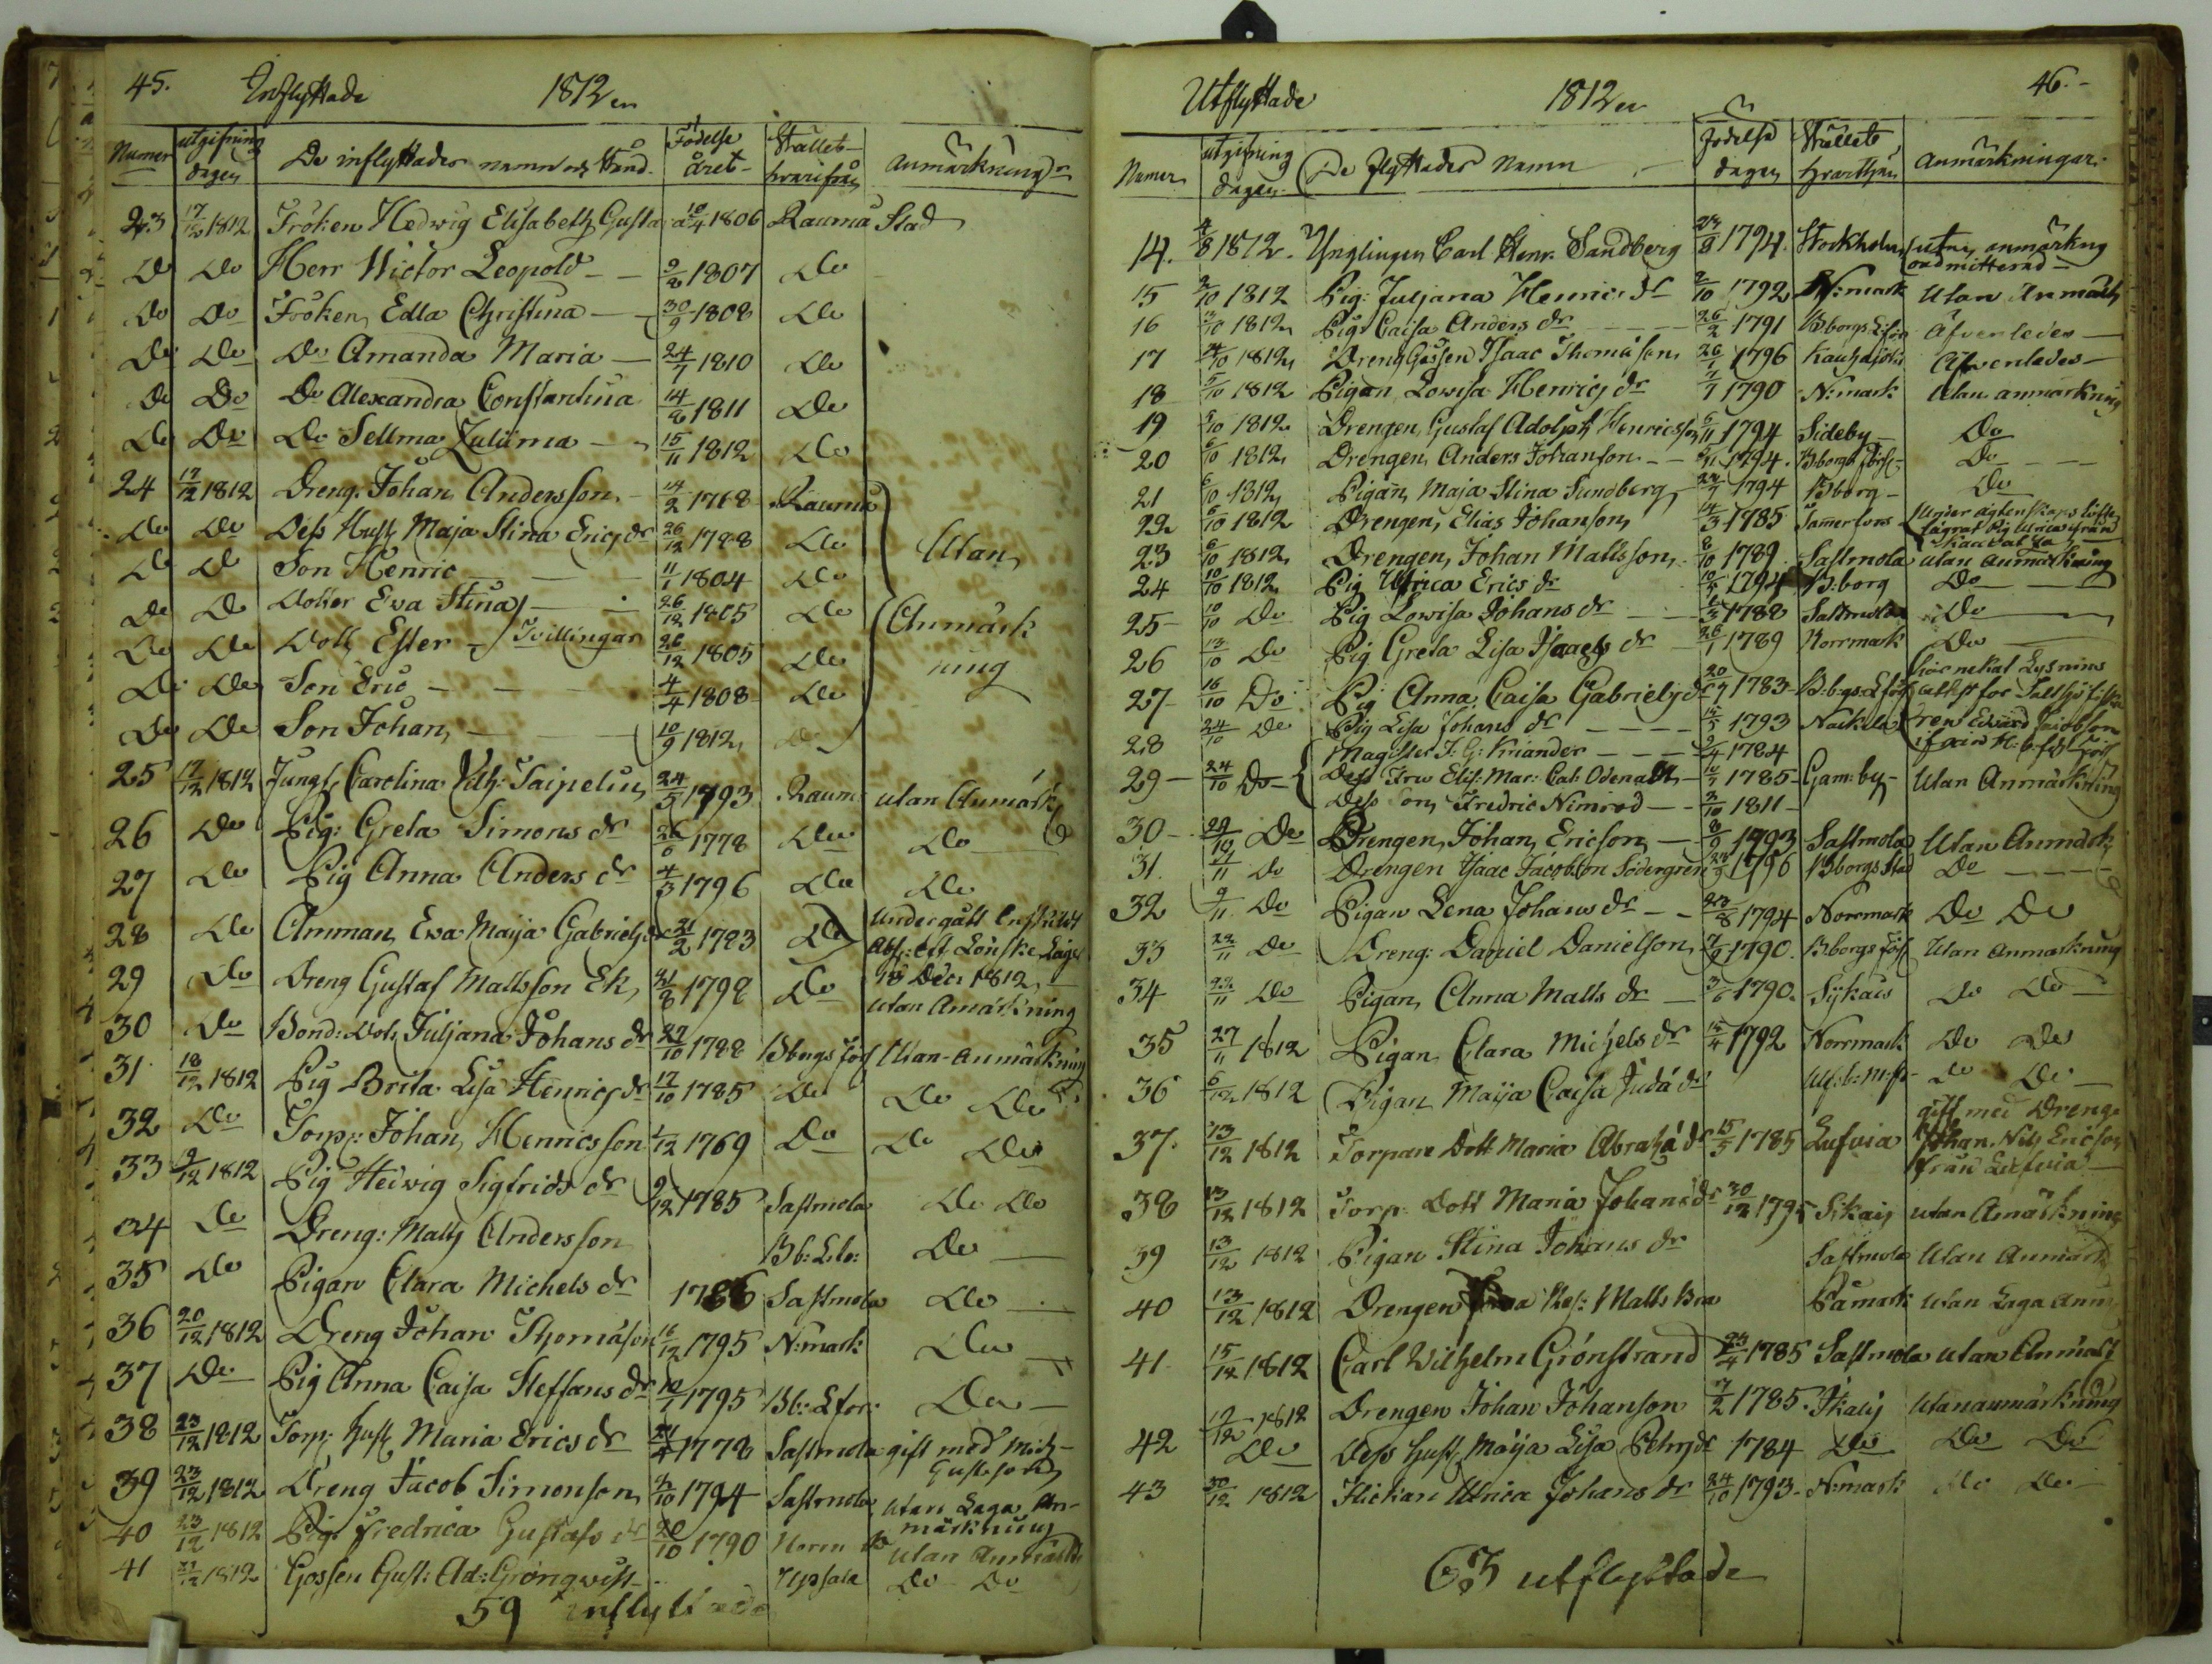 45. Inflyttade 1812
Numer utgifning dagen De inflyttades namn och Stånd. Födelse året Stället hvarifrån anmärkning
23 17/12 1812 Fröken Hedwig Elisabeth Gusta 10/4 1806 Raumå Stad
Do Do Herr Wictor Leopold 9/8 1807 Do
Do Do Fröken Edla Christina 30/9 1808 Do
Do Do Do Amanda Maria 24/7 1810 Do
Do Do Do Alexandra Constantina 14/8 1811 Do
Do Do Do Sellma Zuliima 15/11 1812 Do
24 17/12 1812 Dreng. Johan Andersson 14/2 1768 Raumå
Do Do Dess Hust Maja Stina Ericsdr 26/12 1788 Do Utan
Do Do Son Henric 11/1 1804 Do
Do Do Dotter Eva Stina 26/12 1805 Do Anmärk
Do Do Dott Ester Tvillingar 26/12 1805 Do ning
Do Do Son Eric 4/4 1808 Do
Do Do Son Johan 10/9 1812 Do
25 17/12 1812 Jungf. Carolina Vilh: Saipelius 24/5 1793 Raum: utan Anmärk
26 Do Pig: Greta Simons dr 26/6 1778 Do Do
27 Do Pig Anna Anders dr 4/3 1796 Do Do
28 Do Amman Eva Maija Gabrielsdr 21/2 1783 Do undergått Enskildt
Abs: 18 Dec: 1812
29 Do Dreng Gustaf Mattsson Ek 21/8 1798 Do utan Anmärkning
30 Do Bond: Dott. Juljana Johans dr 27/10 1788 Bbrgs förs Utan Anmärkning
31 18/12 1812 Pig Brita Lisa Henricsdr 17/10 1785 Do Do Do
32 Do Torp: Johan Henricsson 1/12 1769 Do Do Do
33 9/12 1812 Pig Hedvig Sigfrids dr 9/12 1785 Sastmola Do Do
34 Do Dreng: Matts Andersson Bb: L:fö: Do
35 Do Pigan Clara Michels dr 1786 Sastmola Do
36 20/12 1812 Dreng Johan Thomason 16/12 1795 N:mark Do
37 Do Pig Anna Caisa Steffans dr 10/7 1795 Bb: Lför: Do
38 23/12 1812 Torp: hust Maria Erics dr 21/4 1778 Sastmola gift med Mich-
Gustafson
39 23/12 1812 Dreng Jacob Simonson 2/10 1794 Sastmola utan Laga An-
märkning
40 23/12 1812 Pig: Fredrica Gustafs dr 20/10 1790 Norrm utan Anmärk
41 1812 Gossen Gust: Ad: Grönqwist Upsala Do Do
59 inflyttade
Utflyttade 1812 46.
Numer utgifning dagen De flyttades Namn Födelse dagen Stället hvarthän Anmärkningar.
14. 4/8 1812. Ynglingen Carl Henr. Sandberg 23/8 1794. Stockholm utan anmärkng oadmitterad
15 2/10 1812 Pig: Juljana Henrics dr 2/10 1792 N:mark Utan Anmärk
16 3/10 1812 Pig: Caisa Anders dr 26/2 1791 B:borgs Lförs Äfvenledes
17 4/10 1812 DrengGossen Isaac Thomason 26/1 1796 Kauhajoki Äfvenledes
18 5/10 1812 Pigan Lowisa Henrics dr 7/7 1790 N:mark Utan anmärkning
19 5/10 1812 Drengen Gustaf Adolph Henricsson 6/11 1794 Sideby Do
20 6/10 1812 Drengen Anders Johanson 1794. B:borgs förs: Do
21 6/10 1812 Pigan Maja Stina Sundberg 24/7 1794 B:borg Do
22 6/10 1812 Drengen Elias Johanson 14/3 1785 Tammerfors Under ägtenskaps löfte
Pig Ulrica
23 6/10 1812 Drengen Johan Mattsson 8/10 1789 Sastmola utan anmärkning
24 10/10 1812 Pig Ulrica Erics dr 1794 B:borg Do
25 10/10 Do Pig Lowisa Johans dr 1788 Sastmola Do
26 13/10 Do Pig Greta Lisa Isaacs dr 26/1 1789 Norrmark Do
27 16/10 Do Pig Anna Caisa Gabrielsdr 20/7 1783 B:b:gs: Lförs Lysnins
attest
28 24/10 Do Pig Lisa Johans dr 1793 Nackila Edvard Jacobson
29 24/10 Do Magister J: G: Kniander 9/4 1784
Dess Fru Elis: Mar: Cat: Odenall 10/7 1785 Gam:by Utan Anmärkning
Dess Son Fredric Nimrod 2/10 1811
30 29/10 Do Drengen Johan Ericson 8/9 1793 Sastmola Utan Anmärk
31. Do Drengen Isaac Jacobson Södergren 1796 B:borgs Stad Do
32 9/11 Do Pigan Lena Johans dr 23/8 1794 Norrmark Do Do
33 22/11 Do Dreng: Daniel Danielson 7/9 1790. B:borgs förs Utan Anmärkning
34 22/11 Do Pigan Anna Matts dr 3/6 1790. Sijkais Do Do
35 27/11 1812 Pigan Clara Michels dr 1792 Norrmark Do Do
36 6/12 1812 Pigan Maija Caisa Juda dr Ulf:b: Do Do
37. 13/12 1812 Torpare Dott Maria Abrahadr 15/5 1785 Lufvia gift med Dreng
Johan Nils Ericson
från Lufvia
38 13/12 1812 Torp: Dott Maria Johansdr 30/12 1795 Sikais utan Anmärkning
39 13/12 1812 Pigan Stina Johans dr Sastmola Utan Anmärk
40 13/12 1812 Drengen Matts Påmark Utan Laga Anm
41. 15/12 1812 Carl Wilhelm Grönstrand 23/4 1785 Sastmola utan Anmärk
42 19/12 1812 Drengen Johan Johanson 7/2 1785. Ikalis Utan anmärkning
Do Dess hust Maija Lisa Petrsdr 1784 Do Do Do
43 30/12 1812 Flickan Ulrica Johans dr 24/10 1793. N:mark Do Do
63 utflyttade